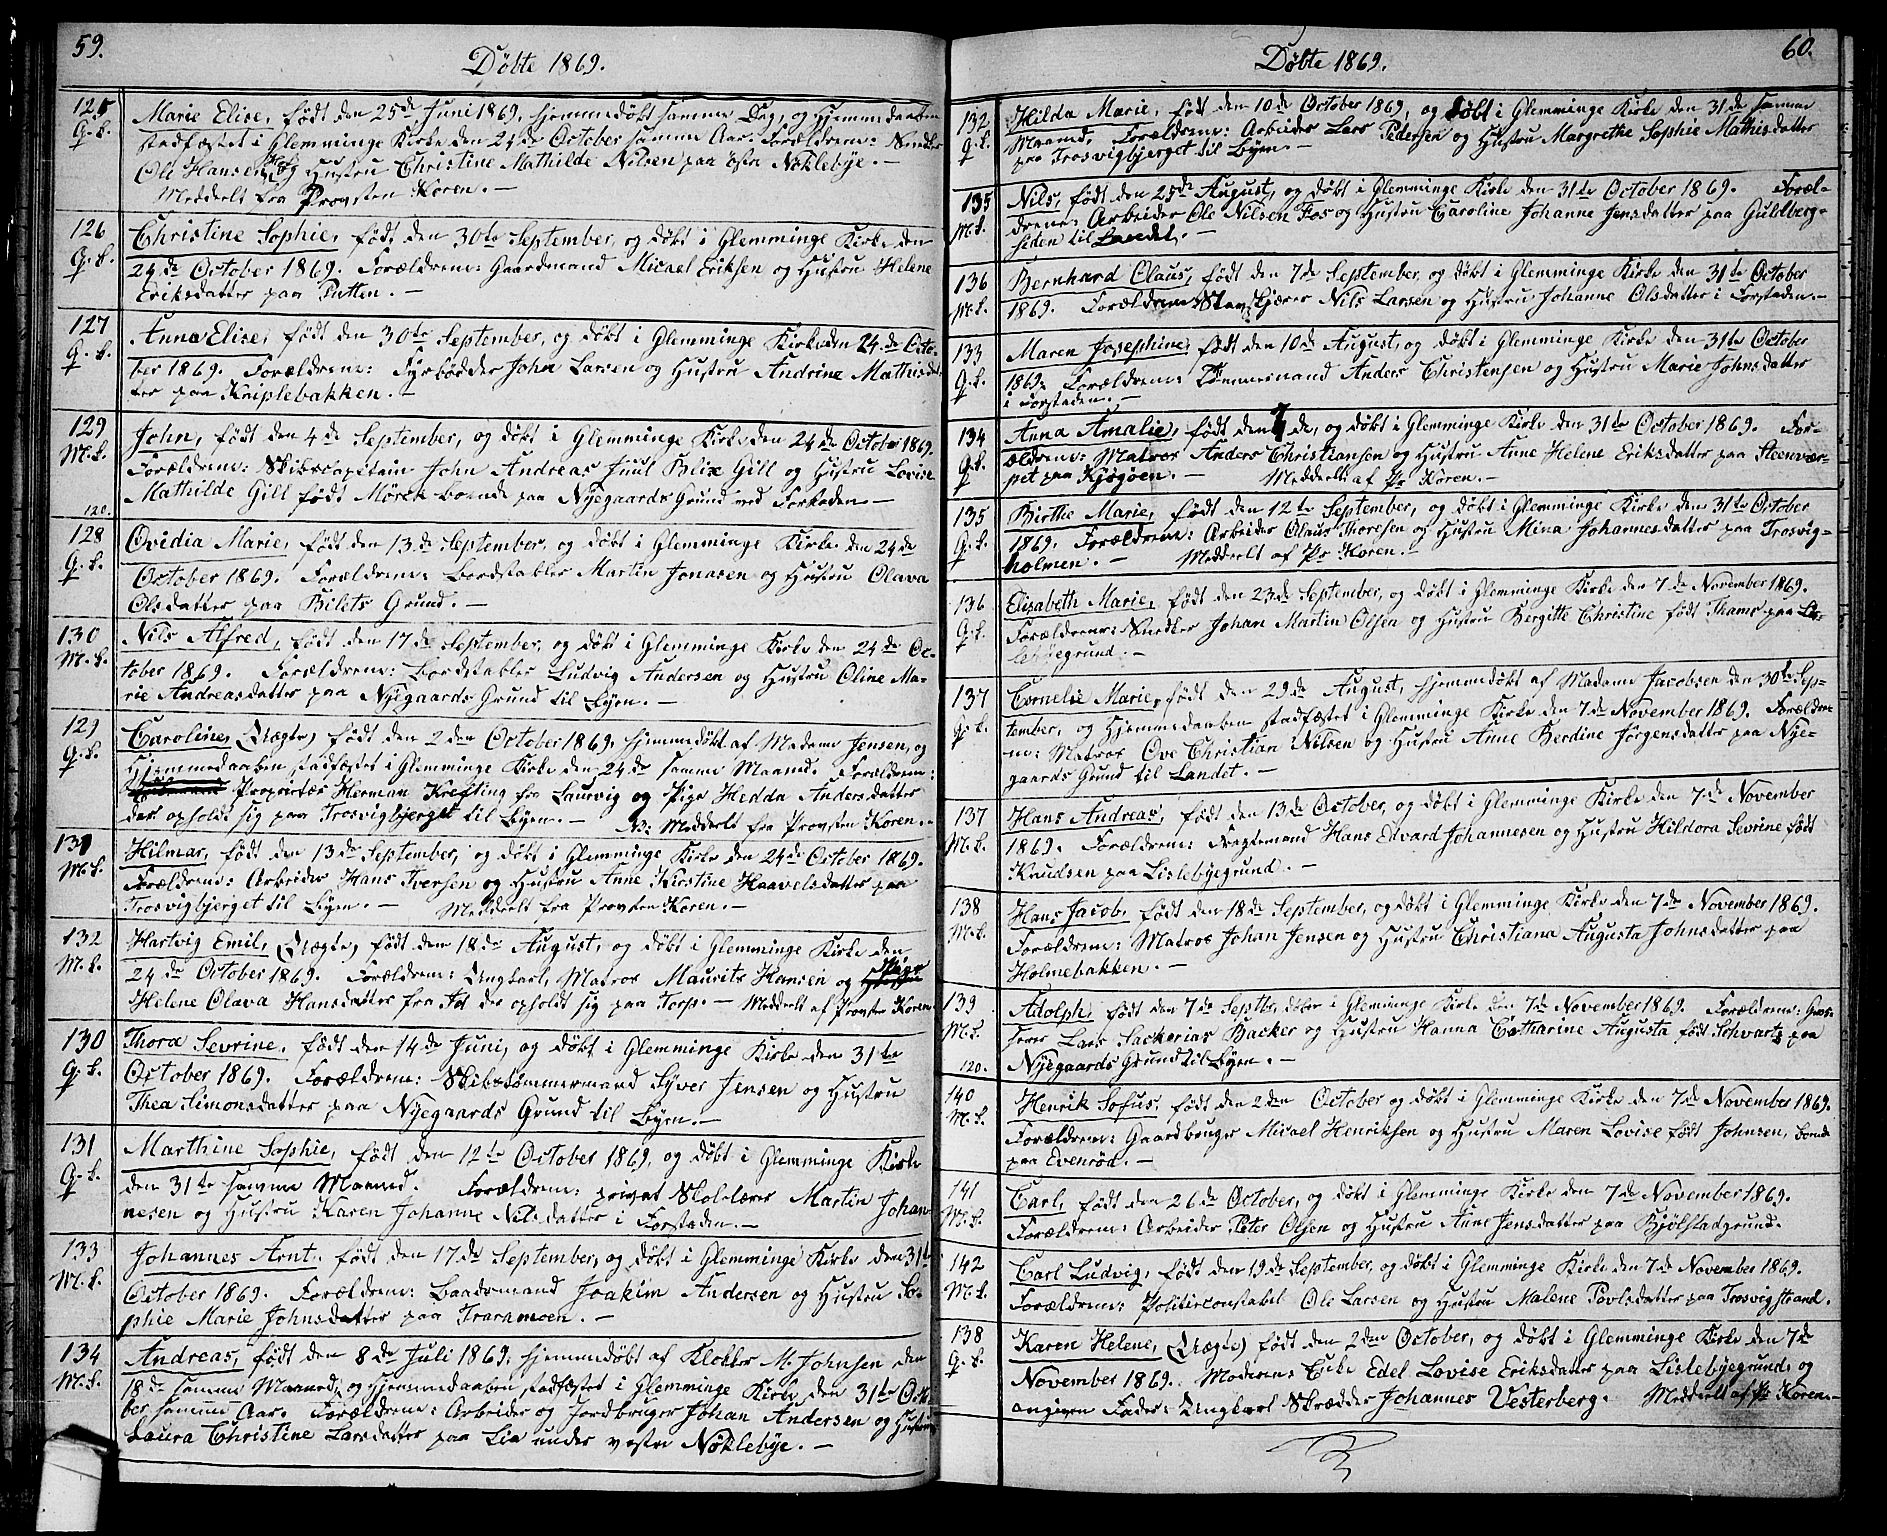 59.
Döbte 1869.
125
Q. K.
Marie Elise, født den 25de Juni 1869, hjemmedøbt samme Dag, og Hjemmedaaben
stadfæstet i Glemminge Kirke den 24de October samme Aar. Forældrene: Snedker
Ole Hansen og Hustru Christine Mathilde Nilsen paa østre Nøklebye. —
Meddelt fra Provsten Koren. —
126
Q. K.
Christine Sophie, født den 30te September, og døbt i Glemminge Kirke den
24de October 1869. Forældrene: Gaardmand Micael Eriksen og Hustru Helene
Eriksdatter paa Putten. —
127
Q. K.
Anna Elise, født den 30te September, og døbt i Glemminge Kirke den 24de Octo-
ber 1869. Forældrene: Fyrbøder John Larsen og Hustru Andrine Mathisdat-
ter paa Kniplebakken. —
129
M. K.
John, født den 4de September, og døbt i Glemminge Kirke den 24de October 1869.
Forældrene: Skibscapitain John Andreas Juul Blix Gill og Hustru Lovise
Mathilde Gill født Mørck boende paa Nyegaards Grund ved Forstaden —
120.
128
Q. K.
Ovidia Marie, født den 13de September, og døbt i Glemminge Kirke den 24de
October 1869. Forældrene: Bordstabler Martin Jonasen og Hustru Olava
Olsdatter paa Bilets Grund. —
130
M. K.
Nils Alfred, født den 17de September, og døbt i Glemminge Kirke den 24de Oc-
tober 1869. Forældrene: Bordstabler Ludvig Andersen og Hustru Oline Ma-
rie Andreasdatter paa Nyegaards Grund til Byen. —
129
Q. K.
Caroline, (Uægte) født den 2den October 1869. hjemmedøbt af Madame Jensen, og
Hjemmedaaben stadfæstet i Glemminge Kirke den 24de samme Maaned. Forældrene:
Proprietær Herman Krefting fra Laurvig og Pige Hedda Andersdatter
der opholdt sig paa Trosvigbjerget til Byen. — NB: Meddelt fra Provsten Koren. —
131
M. K.
Hilmar, født den 13de September, og døbt i Glemminge Kirke den 24de October 1869.
Forældrene: Arbeider Hans Iversen og Hustru Anne Kirstine Haavelsdatter paa
Trosvigbjerget til Byen. — Meddelt fra Provsten Koren. —
132
M. K.
Hartvig Emil, (Uægte) født den 18de August, og døbt i Glemminge Kirke den
24de October 1869. Forældrene: Ungkarl, Matros Maurits Hansen og Pige
Helene Olava Hansdatter fra Id der opholdt sig paa Torp. — Meddelt af Provsten Koren
130
Q. K.
Thora Sevrine, født den 14de Juni, og døbt i Glemminge Kirke den 31te
October 1869. Forældrene: Skibstømmermand Syver Jensen og Hustru
Thea Simonsdatter paa Nyegaards Grund til Byen. —
131
Q. K.
Marthine Sophie, født den 12te October 1869, og døbt i Glemminge Kirke
den 31te samme Maaned. Forældrene: privat Skolelærer Martin Johan-
nesen og Hustru Karen Johanne Nilsdatter i Forstaden. —
133
M. K.
Johannes Arnt, født den 17de September, og døbt i Glemminge Kirke den 31te
October 1869. Forældrene: Baadsmand Joakim Andersen og Hustru So-
phie Marie Johnsdatter paa Traramoen. —
134
M. K.
Andreas, født den 8de Juli 1869, hjemmedøbt af Klokker M. Johnsen den
18de samme Maaned, og Hjemmedaaben stadfæstet i Glemminge Kirke den 31te Octo-
ber samme Aar. Forældrene: Arbeider og Jordbruger Johan Andersen og Hustru
Laura Christine Larsdatter paa Lie under vestre Nøklebye. —
60.
Döbte 1869.
132
Q. K.
Hilda Marie, født den 10de October 1869, og døbt i Glemminge Kirke den 31te samme
Maaned. Forældrene: Arbeider Lars Pedersen og Hustru Margrethe Sophie Mathisdatter
paa Trosvigbjerget til Byen. —
135
M. K.
Nils, født den 25de August, og døbt i Glemminge Kirke den 31te October 1869. Foræl-
drene: Arbeider Ole Nilsen Fos og Hustru Caroline Johanne Jensdatter paa Guldberg-
siden til Landet. —
136
M. K.
Bernhard Olaus, født den 7de September, og døbt i Glemminge Kirke den 31te October
1869. Forældrene: Stavskjærer Nils Larsen og Hustru Johanne Olsdatter i Forstaden. —
133
Q. K.
Maren Josephine, født den 10de August, og døbt i Glemminge Kirke den 31te October
1869. Forældrene: Tømmermand Anders Christensen og Hustru Marie Johnsdatter
i Forstaden. —
134
Q. K.
Anna Amalie, født den 1 de, og døbt i Glemminge Kirke den 31te October 1869. For-
ældrene: Matros Anders Christiansen og Hustru Anne Helene Eriksdatter paa Steenvær-
pet paa Kjøgøen. — Meddelt af Pr Koren. —
135
Q. K.
Birthe Marie, født den 12te September, og døbt i Glemminge Kirke den 31te October
1869. Forældrene: Arbeider Olaus Thoresen og Hustru Mina Johannesdatter paa Trosvig-
holmen. — Meddelt af Pr Koren. —
136
Q. K.
Elizabeth Marie, født den 23de September, og døbt i Glemminge Kirke den 7de November 1869.
Forældrene: Snedker Johan Martin Olsen og Hustru Bergitte Christine født Thams paa Lis-
lebyegrund. —
137
Q. K.
Cornelie Marie, født den 29de August, hjemmedøbt af Madame Jacobsen den 30te Sep-
tember, og Hjemmedaaben stadfæstet i Glemminge Kirke den 7de November 1869. Forældre-
ne: Matros Ove Christian Nilsen og Hustru Anne Berdine Jørgensdatter paa Nye-
gaards Grund til Landet. —
137
M. K.
Hans Andreas, født den 13de October, og døbt i Glemminge Kirke den 7de November
1869. Forældrene: Fragtemand Hans Edvard Johannesen og Hustru Hildora Sevrine født
Knudsen paa Lislebyegrund. —
138
M. K.
Hans Jacob, født den 18de September, og døbt i Glemminge Kirke den 7de November 1869.
Forældrene: Matros Johan Jensen og Hustru Christiana Augusta Johnsdatter paa
Holmebakken. —
139
M. K.
Adolph, født den 7de Septbr, døbt i Glemminge Kirke den 7de November 1869. Forældrene:
Lars Sackerias Backer og Hustru Hanna Catharine Augusta født Schvartz paa
120.
Nyegaards Grund til Byen. —
140
M. K.
Henrik Sofus, født den 2den October og døbt i Glemminge Kirke den 7de November 1869.
Forældrene: Gaardbruger Micael Henriksen og Hustru Maren Lovise født Johnsen, boende
paa Evenrød. —
141
M. K.
Carl, født den 26de October, og døbt i Glemminge Kirke den 7de November 1869.
Forældrene: Arbeider Peter Olsen og Hustru Anne Jensdatter paa Kjølstadgrund.
142
M. K.
Carl Ludvig, født den 19de September, og døbt i Glemminge Kirke den 7de November 1869.
Forældrene: Politieconstabel Ole Larsen og Hustru Malene Povlsdatter paa Trosvigstrand.
138
Q. K.
Karen Helene, (Uægte) født den 2den October, og døbt i Glemminge Kirke den 7de
November 1869. Moderen: Enke Edel Lovise Eriksdatter paa Lislebyegrund, og
angiven Fader: Ungkarl Skrædder Johannes Vesterberg. Meddelt af Pr Koren. —